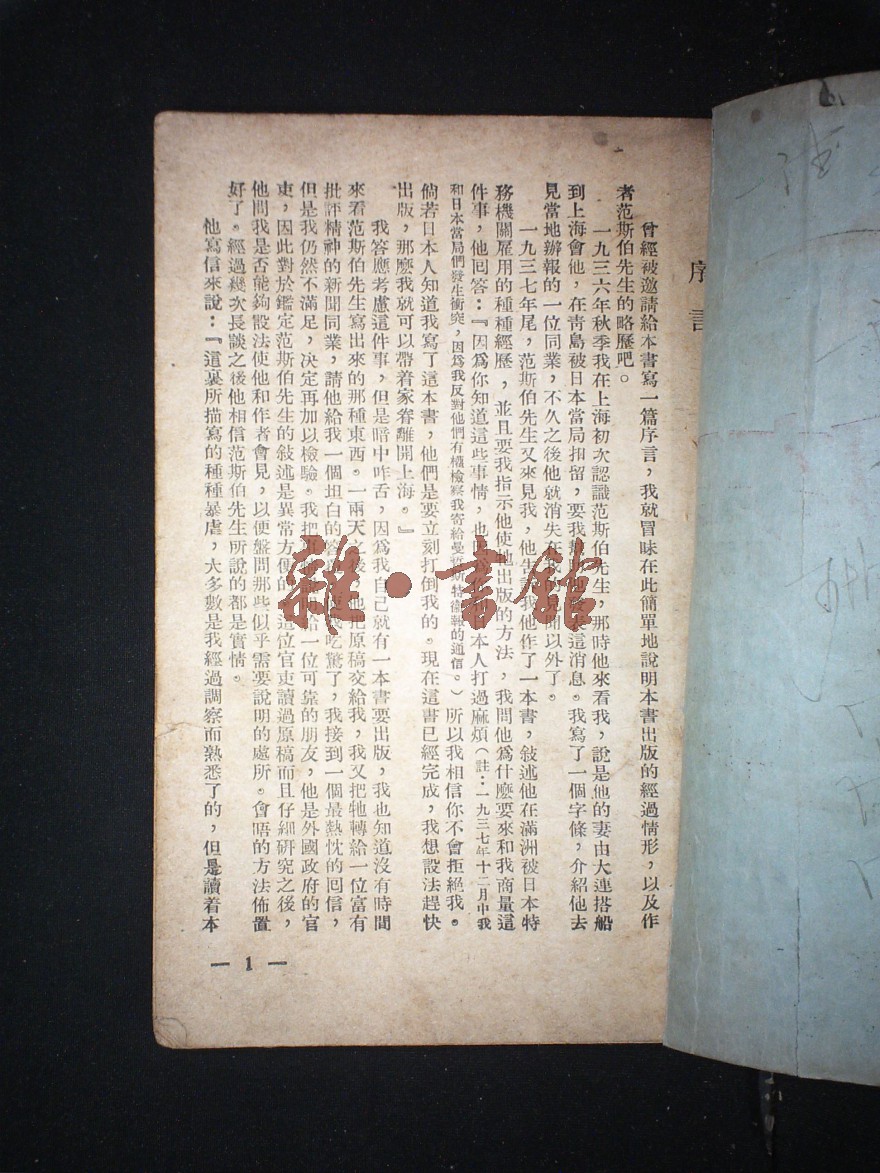 序言
曾經被邀請給本書寫一篇序言，我就冒昧在此簡單地說明本書出版的經過情形，以及作
者范斯伯先生的略歷吧。
一九三六年秋季我在上海初次認識范斯伯先生，那時他來看我，說是他的妻由大連搭船
到上海會他，在靑島被日本當局扣留，要我這消息。我寫了一個字條，介紹他去
見當地辦報的一位同業，不久之後他就消失在以外了。
一九三七年尾，范斯伯先生又來見我，他告訴我他作了一本書，敍述他在滿洲被日本特
務機關雇用的種種經歷，並且要我指示他使牠出版的方法，我問他爲什麼要來和我商量這
件事，他回答：『因爲你知道這些事情，也日本人打過麻煩（註：一九三七年十二月中我
和日本當局們發生衝突，因爲我反對他們有權檢察我寄給曼哲斯特衞報的通信。）所以我相信你不會拒絕我。
倘若日本人知道我寫了這本書，他們是要立刻打倒我的。現在這書已經完成，我想設法趕快
出版，那麼我就可以帶着家眷離開上海。』
我答應考慮這件事，但是暗中咋舌，因爲我自己就有一本書要出版，我也知道沒有時間
來看范斯伯先生寫出來的那種東西。一兩天之後，他把原稿交給我，我又把牠轉給一位富有
批評精神的新聞同業，請他給我一個坦白的吃驚了，我接到一個最熱忱的回信，
但是我仍然不滿足，决定再加以檢驗。我把給一位可靠的朋友，他是外國政府的官
吏，因此對於鑑定范斯伯先生的敍述是異常方便的。這位官吏讀過原稿而且仔細研究之後，
他問我是否能夠設法使他和作者會見，以便盤問那些似乎需要說明的處所。會晤的方法佈置
好了。經過幾次長談之後他相信范斯伯先生所說的都是實情。
他寫信來說：『這裏所描寫的種種暴虐，大多數是我經過調察而熟悉了的，但是讀着本
— 1 —
雜·書館